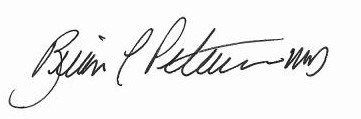 Brian L Peterson MD